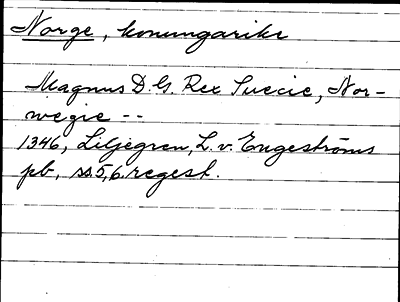 Norge, konungarike
Magnus D. G. Rex Suecie, Nor-
wegie --
1346, Liljegren, L. v. Engeströms
pb, ss. 5, 6. regest.